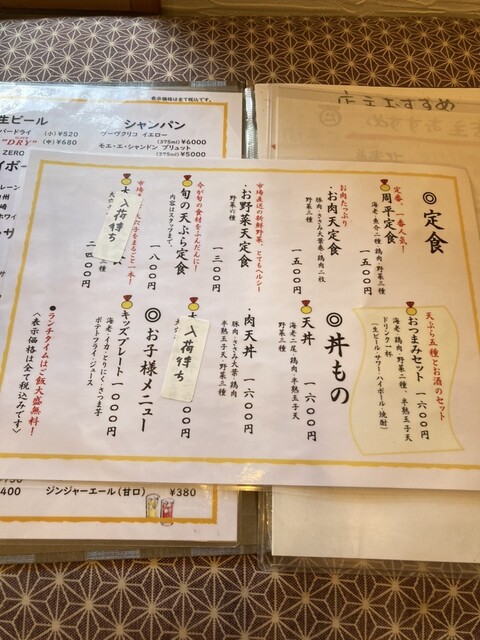 表示価格は全て税込です。
生ビール
パードライ (小) ¥520
"DRY" (中) ¥680
ZERO
シャンパン
ソーヴクリコ イエロー
(375ml) ¥6000
モエ・エ・シャンドン ブリュット
(375ml) ¥5000
店主おすすめ
◎定食
定番、一番人気!
周平定食
海老・魚介二種 鶏肉・野菜三種
一五〇〇円
お肉たっぷり
・お肉天定食
豚肉・ささみ大葉巻 鶏肉二枚
野菜三種
一五〇〇円
市場直送の新鮮野菜、とてもヘルシー
・お野菜天定食
野菜六種
一三〇〇円
今が旬の食材をふんだんに!
旬の天ぷら定食
内容はスタッフまで。
一八〇〇円
入荷待ち
天ぷら五種とお酒のセット
おつまみセット
一六〇〇円
海老・鶏肉・野菜二種、半熟玉子天
ドリンク一杯
(生ビール・サワー・ハイボール・焼酎)
◎丼もの
天丼
一六〇〇円
海老二尾 鶏肉 半熟玉子天
野菜三種
・肉天丼
一五〇〇円
豚肉・ささみ大葉 鶏肉
半熟玉子天・野菜三種
入荷待ち
◎お子様メニュー
キッズプレート
一〇〇〇円
海老・イカ・とりにく・さつま芋
ポテトフライ・ジュース
●ランチタイムはご飯大盛無料!
〈表示価格は全て税込みです〉
ジンジャーエール(甘口) ¥380